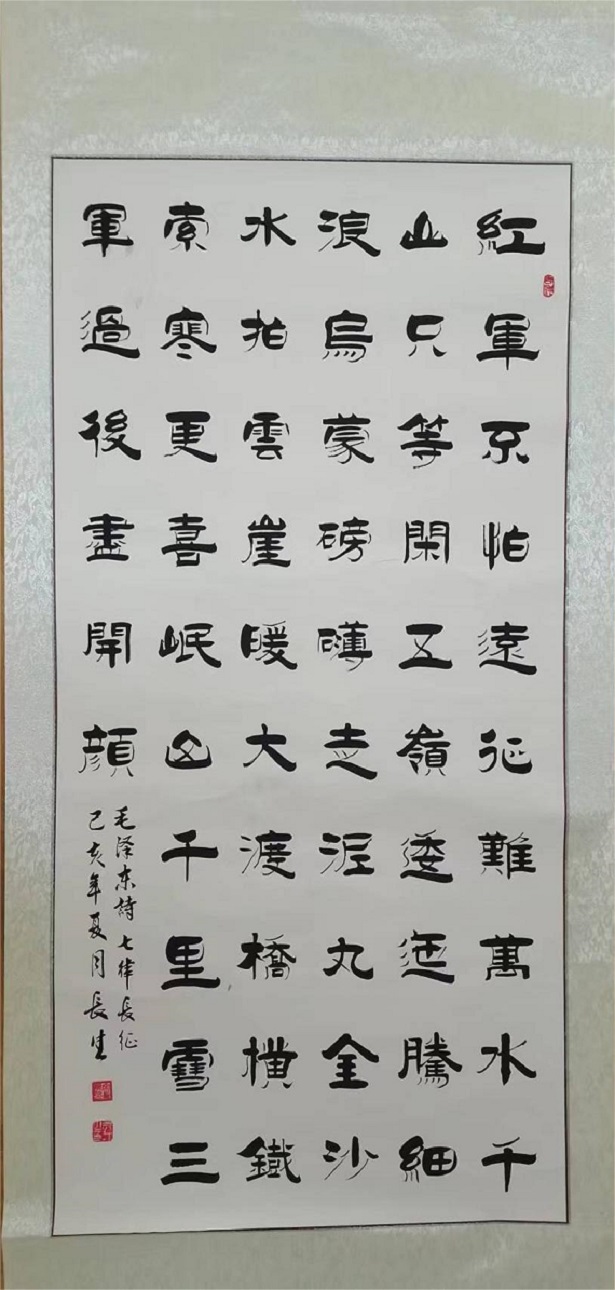 紅軍不怕遠征難萬水千
山只等閑五嶺逶迤騰細
浪烏蒙磅礴走泥丸金沙
水拍雲崖暖大渡橋橫鐵
索寒更喜岷山千里雪三
軍過後盡開顏
毛泽东詩七律長征
己亥年夏月長生